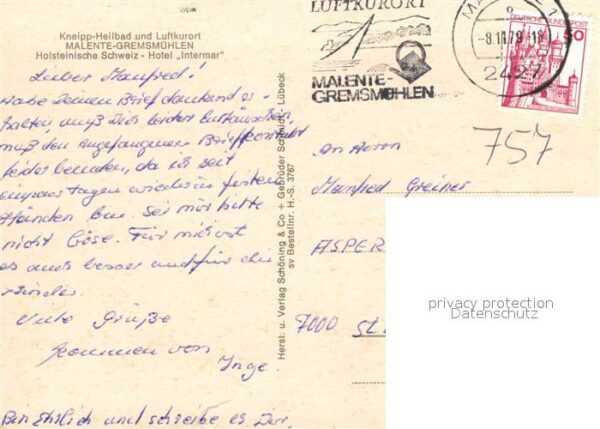 Kneipp-Heilbad und Luftkurort
MALENTE-GREMSMÜHLEN
Holsteinische Schweiz - Hotel „Intermar"
Lieber Manfred!
Habe Deinen Brief dankend er-
halten, muß Dich leider enttäuschen,
muß den angefangenen Briefkontakt
leider beenden, da ich seit
einigen Tagen wieder in festen
Händen bin. Sei mir bitte
nicht böse. Für mich ist
es auch besser und für die
Kinder.
Viele Grüße
kommen von
Inge.
Bin Ehrlich und schreibe es Dir.
Herst. u. Verlag Schöning & Co + Gebrüder Schmidt - Lübeck
sv Bestellnr. H.-S. 3767
LUFTKURORT
MALENTE-
GREMSMÜHLEN
-8.11.79-18
2427
DEUTSCHE BUNDESPOST
50
757
An Herrn
Manfred Greiner
ASPER
7000 St
privacy protection
Datenschutz